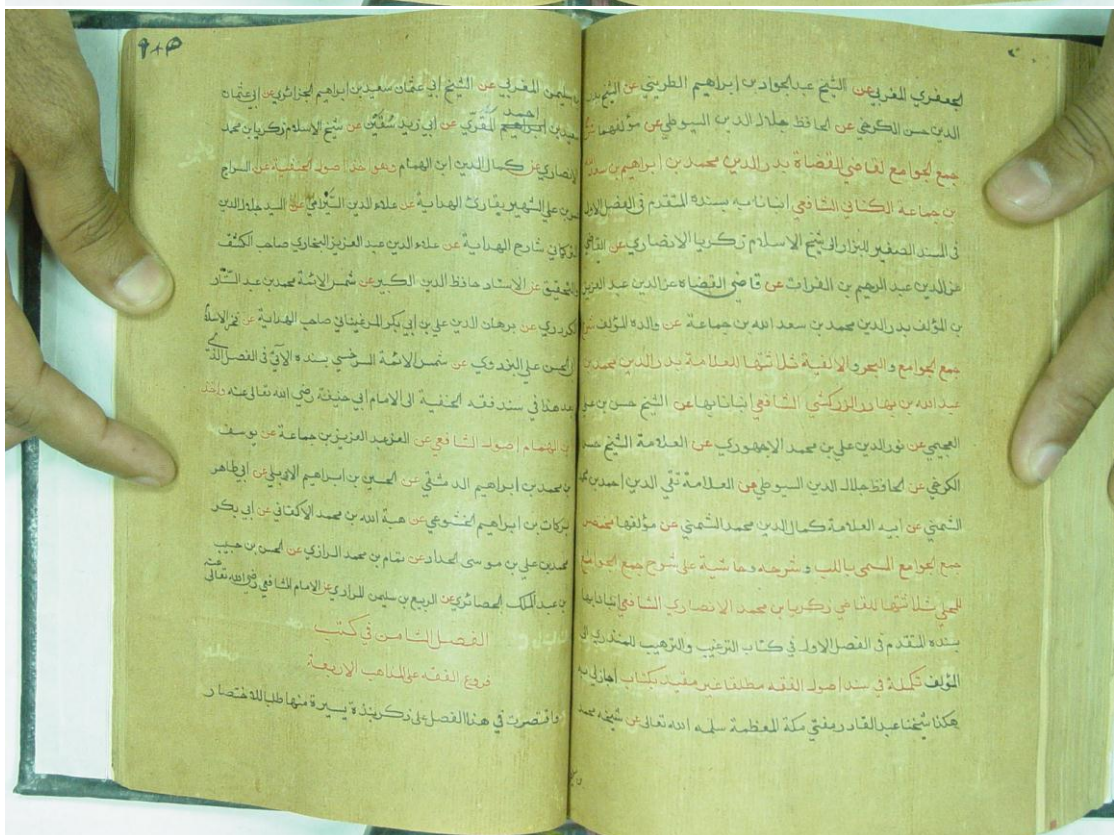 الجعفري المغربي عن الشيخ عبد الجواد بن إبراهيم الطريني عن الشيخ بدر
الدين حسن الكرخي عن الحافظ جلال الدين السيوطي عن مؤلفهما
جمع الجوامع لقاضي القضاة بدر الدين محمد بن إبراهيم بن سعد
بن جماعة الكناني الشافعي انبانا به بسنده المتقدم في الفصل الاول
في المسند الصغير للبزار الى شيخ الاسلام زكريا الانصاري عن القاضي
عز الدين عبد الرحيم بن الفرات عن قاضي القضاه عز الدين عبد العزيز
بن المؤلف بدر الدين محمد بن سعد الله بن جماعة عن والده المؤلف
جمع الجوامع والبحر والالفية ثلاثتها للعلامة بدر الدين محمد بن
عبد الله بن بهادر الزركشي الشافعي انبانا بها عن الشيخ حسن بن علي
العجيمي عن نور الدين علي بن محمد الاجهوري عن العلامة الشيخ
الكرخي عن الحافظ جلال الدين السيوطي عن العلامة تقي الدين احمد بن
الشمني عن ابيه العلامة كمال الدين محمد الشمني عن مؤلفها مختصر
جمع الجوامع المسمى باللب وشرحه وحاشية على شرح جمع الجوامع
للمحلي ثلاثتها للقاضي زكريا بن محمد الانصاري الشافعي انبانا بها
بسنده المتقدم في الفصل الاول في كتاب الترغيب والترهيب للمنذري الى
المؤلف تكملة في سند اصول الفقه مطلقا غير مقيد بكتاب اجازلي به
هكذا شيخنا عبد القادر مفتي مكة المعظمة سلمه الله تعالى عن شيخه محمد
بن سليمن المغربي عن الشيخ ابي عثمان سعيد بن ابراهيم الجزائري عن ابي عثمان
سعيد بن احمد المقري عن ابي زيد سقين عن شيخ الاسلام زكريا بن محمد
الانصاري عن كمال الدين ابن الهمام وهو اخذ اصول الحنفية عن السراج
عمر بن علي الشهير بقارئ الهداية عن علاء الدين السيرامي عن السيد جلال الدين
الكرلاني شارح الهداية عن علاء الدين عبد العزيز البخاري صاحب الكشف
والتحقيق عن الاستاد حافظ الدين الكبير عن شمس الائمة محمد بن عبد الستار
الكردري عن برهان الدين علي بن ابي بكر المرغيناني صاحب الهداية عن فخر الاسلام
ابي الحسن علي البزدوي عن شمس الائمة السرخسي بسنده الآتي في الفصل الذي
بعد هذا في سند فقه الحنفية الى الامام ابي حنيفة رضي الله تعالى عنه واخذ
ابن الهمام اصول الشافعي عن العز عبد العزيز بن جماعة عن يوسف
بن محمد بن ابراهيم الدمشقي عن الحسين بن ابراهيم الاربلي عن ابي طاهر
بركات بن ابراهيم الخشوعي عن هبة الله بن محمد الاكفاني عن ابي بكر
محمد بن علي بن موسى الحداد عن تمام بن محمد الرازي عن الحسن بن حبيب
بن عبد الملك الحصائري عن الربيع بن سليمن المرادي عن الامام الشافعي رضي الله تعالى عنه
الفصل الثامن في كتب
فروع الفقه على المذاهب الاربعة
واقتصرت في هذا الفصل على ذكر نبذة يسيرة منها طلبا للاختصار